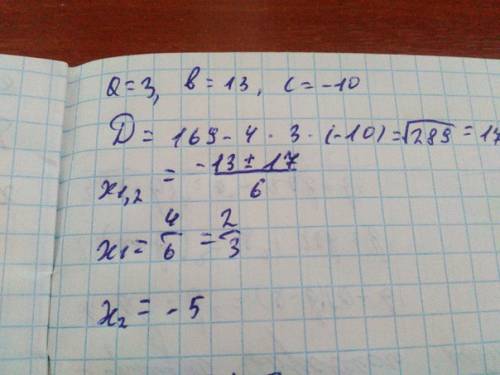 a=3, b=13, c=-10
D= 169-4·3·(-10)=√289=17
x₁,₂ = (-13±17)/6
x₁= 4/6 = 2/3
x₂= -5